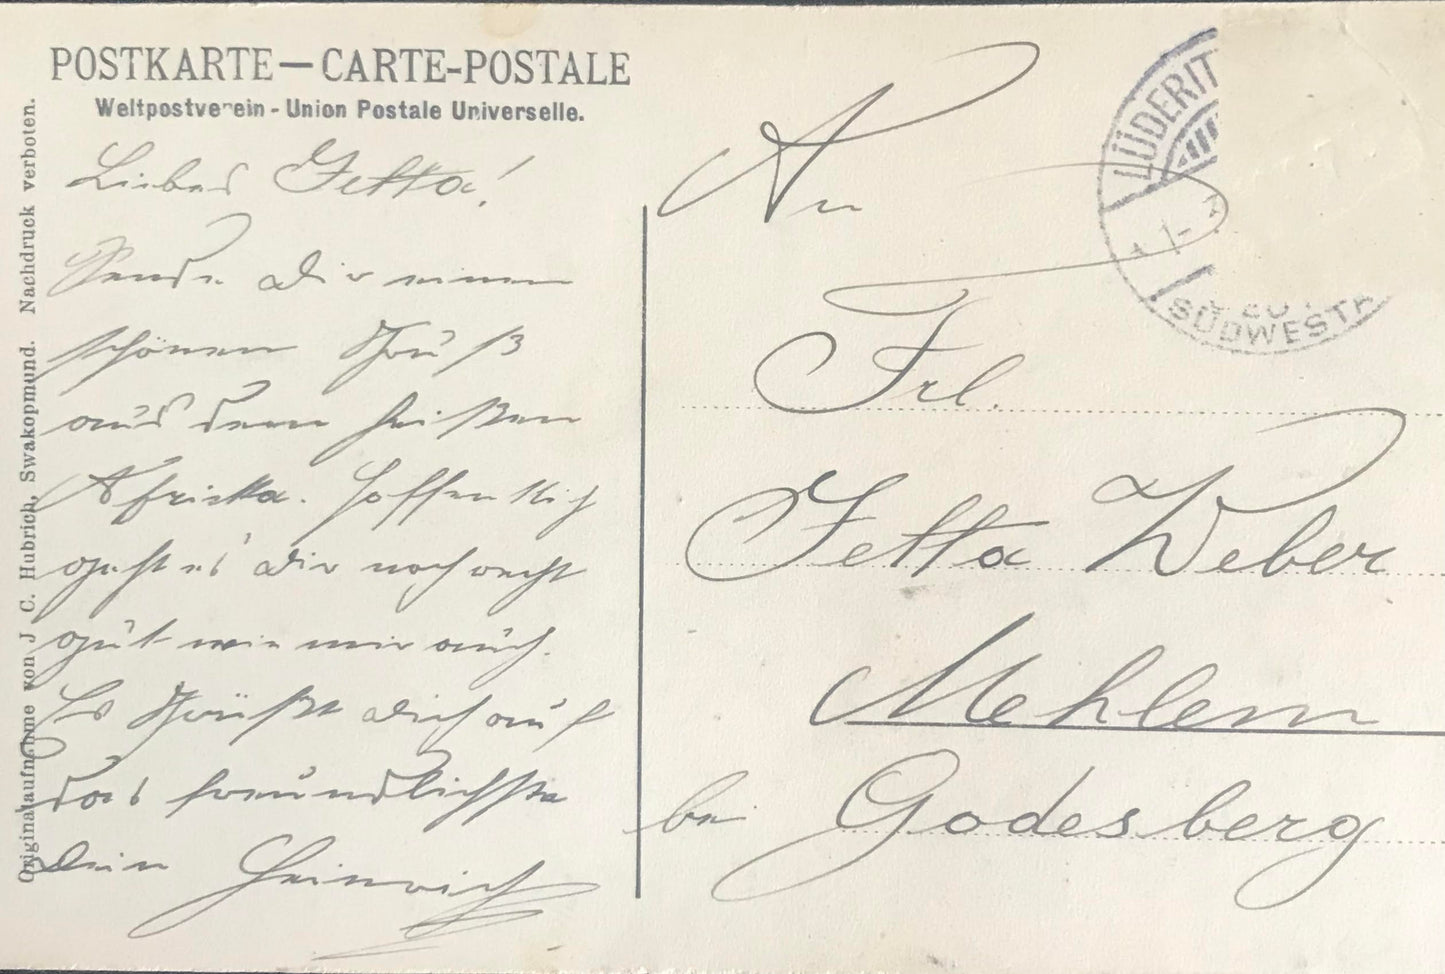 POSTKARTE—CARTE-POSTALE
Weltpostverein - Union Postale Universelle.
Liebes Jetta!
Sende Dir einen
schönen Gruß
aus dem heißen
Afrika. Hoffentlich
geht es Dir noch recht
gut wie mir auch.
Es Grüßt Dich auf
das freundlichste
Dein Heinrich
An
Frl.
Jetta Weber
Mehlem
bei Godesberg
LÜDERIT
SÜDWESTA
Originalaufnahme von J. C. Hubrich, Swakopmund. Nachdruck verboten.